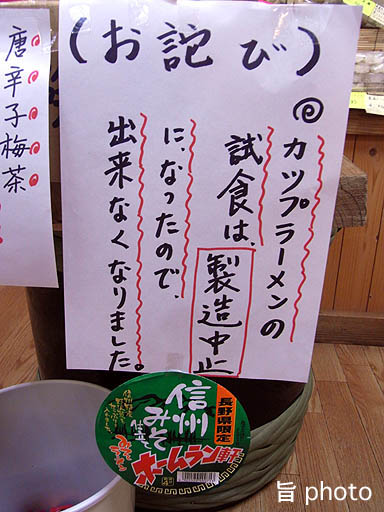 (お詫び)
カップラーメンの
試食は、製造中止
に、なったので、
出来なくなりました。
唐辛子梅茶
長野県限定
信州
みそ
仕立て
ホームラン軒
旨 photo